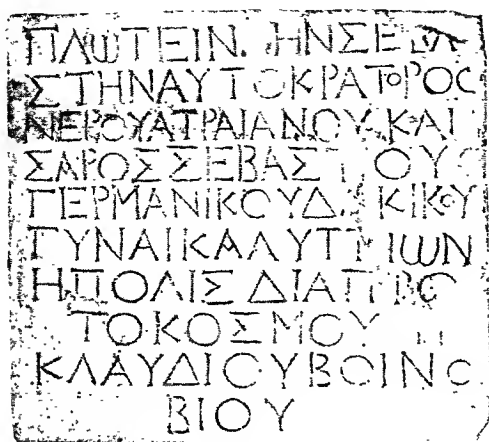 ΠΛΩΤΕΙΝ ΗΝΣΕΒΑ
ΣΤΗΝΑΥΤΟΚΡΑΤΟΡΟΣ
ΝΕΡΟΥΑΤΡΑΙΑΝΟΥΚΑΙ
ΣΑΡΟΣΣΕΒΑΣΤΟΥ
ΓΕΡΜΑΝΙΚΟΥΔ ΚΙΚΟΥ
ΓΥΝΑΙΚΑΛΥΤΤΙΩΝ
ΗΠΟΛΙΣΔΙΑΠΡΟ
ΤΟΚΟΣΜΟΥ
ΚΛΑΥΔΙΟΥΒΟΙΝΟ
ΒΙΟΥ